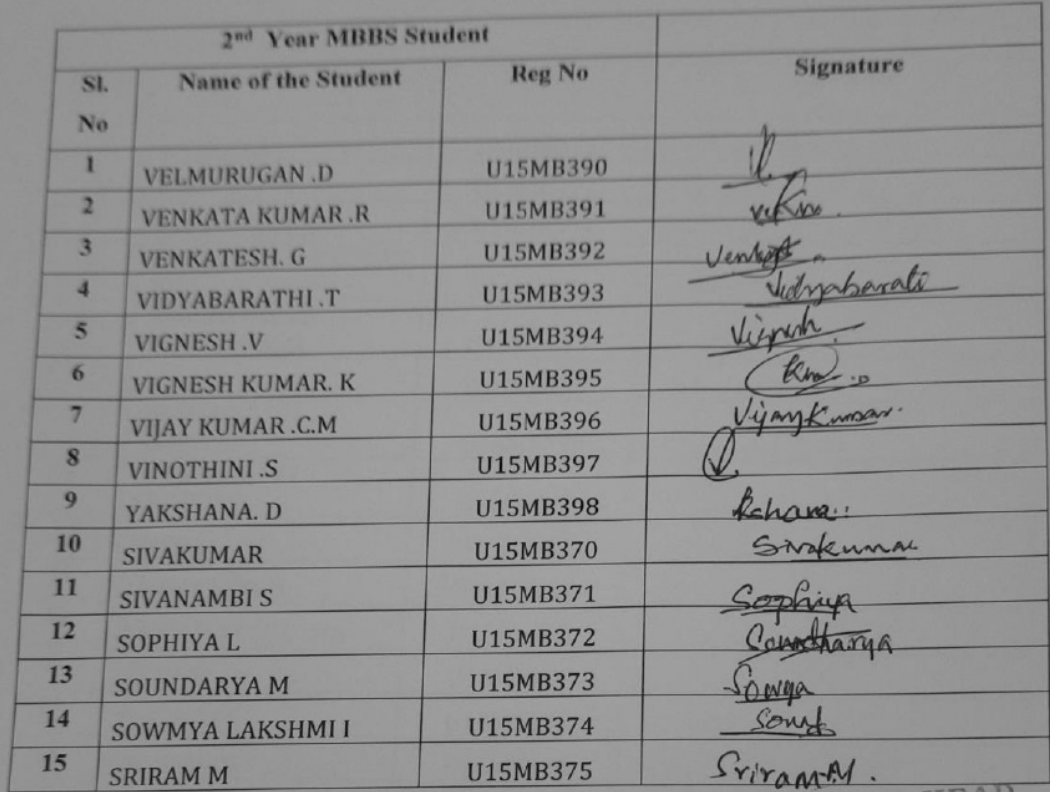 2nd Year MBBS Student
Sl. No Name of the Student Reg No Signature
1 VELMURUGAN .D U15MB390
2 VENKATA KUMAR .R U15MB391
3 VENKATESH. G U15MB392
4 VIDYABARATHI .T U15MB393 Vidyabarati
5 VIGNESH .V U15MB394 Vignesh
6 VIGNESH KUMAR. K U15MB395
7 VIJAY KUMAR .C.M U15MB396 VijayKumar.
8 VINOTHINI .S U15MB397
9 YAKSHANA. D U15MB398
10 SIVAKUMAR U15MB370 Sivakumar
11 SIVANAMBI S U15MB371 Sophiya
12 SOPHIYA L U15MB372 Soundharya
13 SOUNDARYA M U15MB373 Sowya
14 SOWMYA LAKSHMI I U15MB374
15 SRIRAM M U15MB375 Sriram.M.